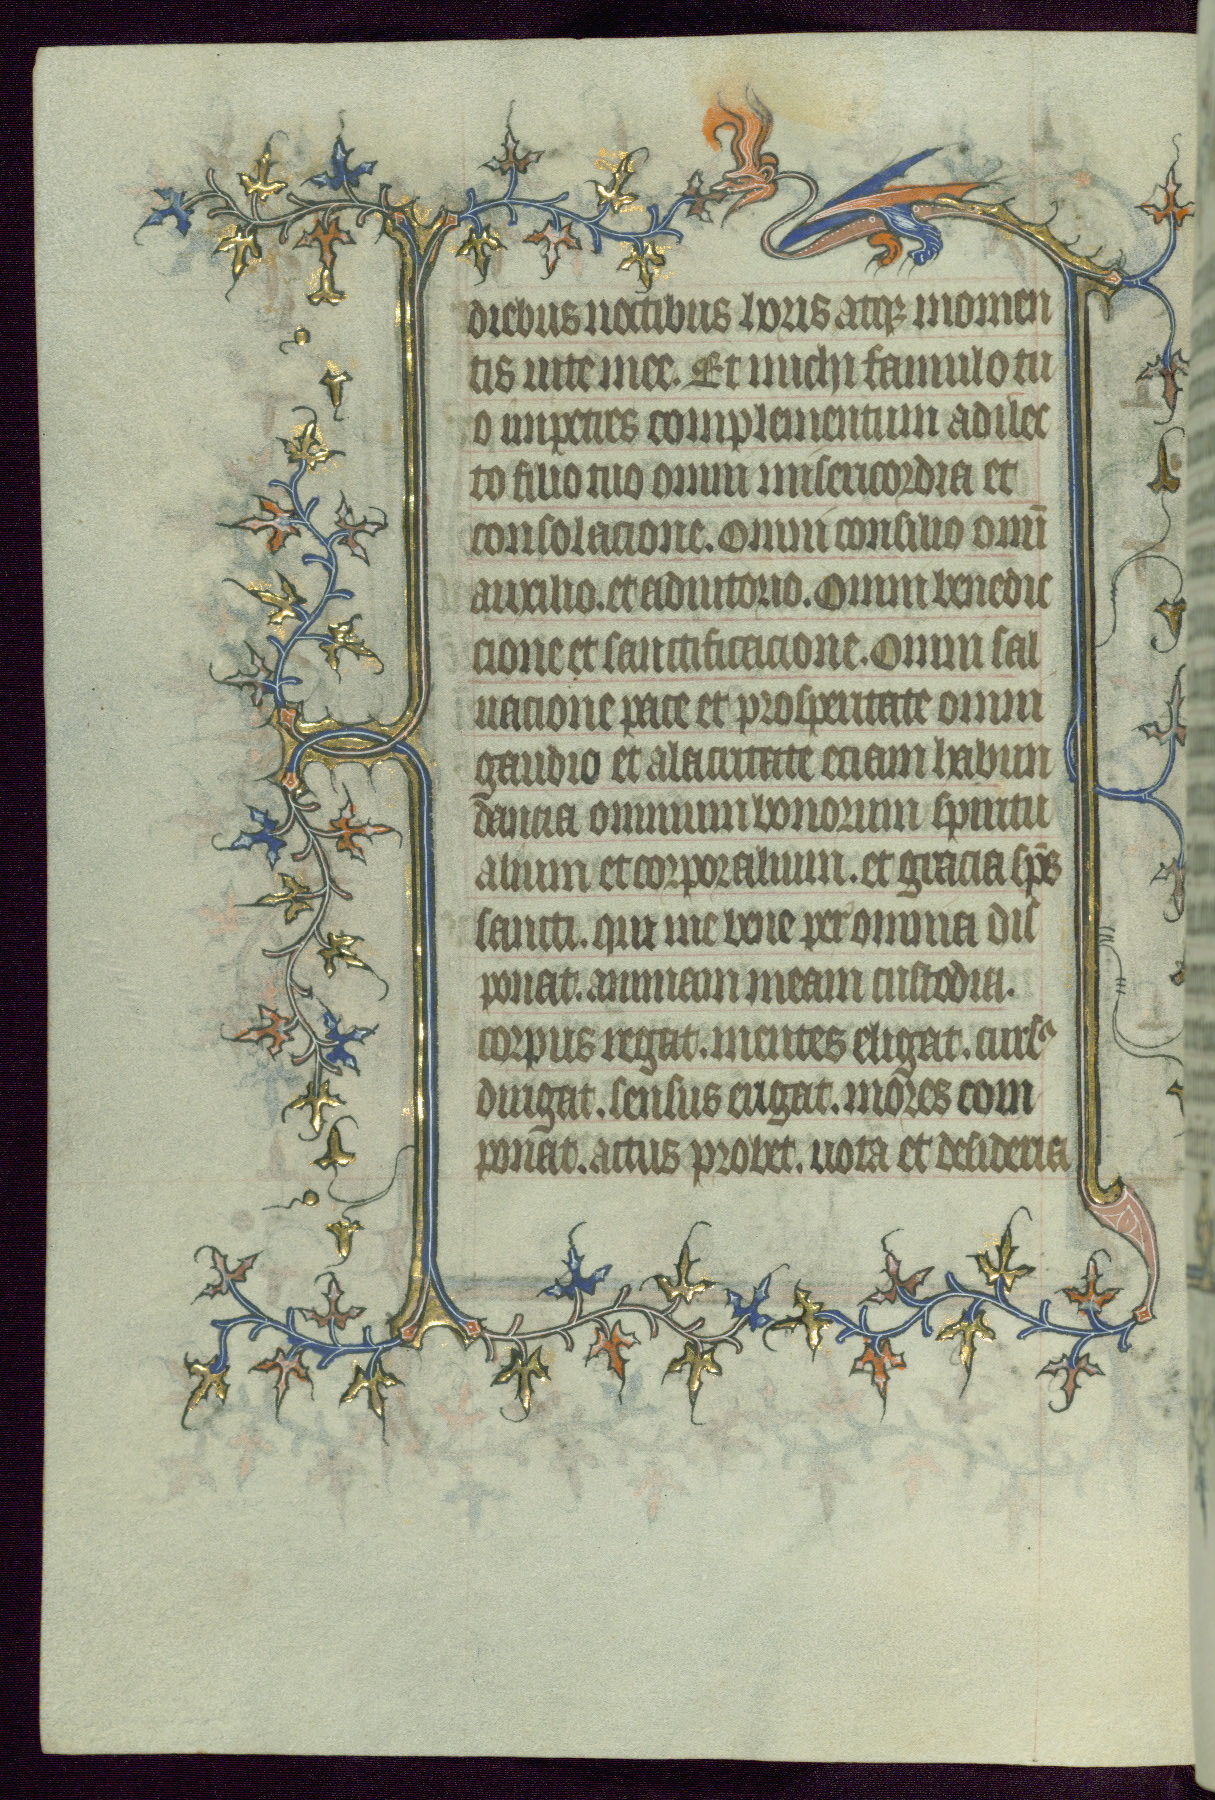 diebus noctibus horis atq3 momen
tis uite mee. Et michi famulo tu
o impetres complementum a dilec
to filio tuo omni misericordia et
consolacione. Omni consilio omni̅
auxilio. et adiutorio. Omni benedic
cione et sanctificacione. Omni sal
uacione pace et prosperitate omni
gaudio et alacritate eciam habun
dancia omnium bonorum spiritu
alium et corporalium. et gracia sp̅s
sancti. qui me bene per omnia dis
ponat. animam meam custodia.
corpus regat. mentes eligat. curs⁹
dirigat. sensus erigat. mores com
ponat. actus probet. uota et desideria